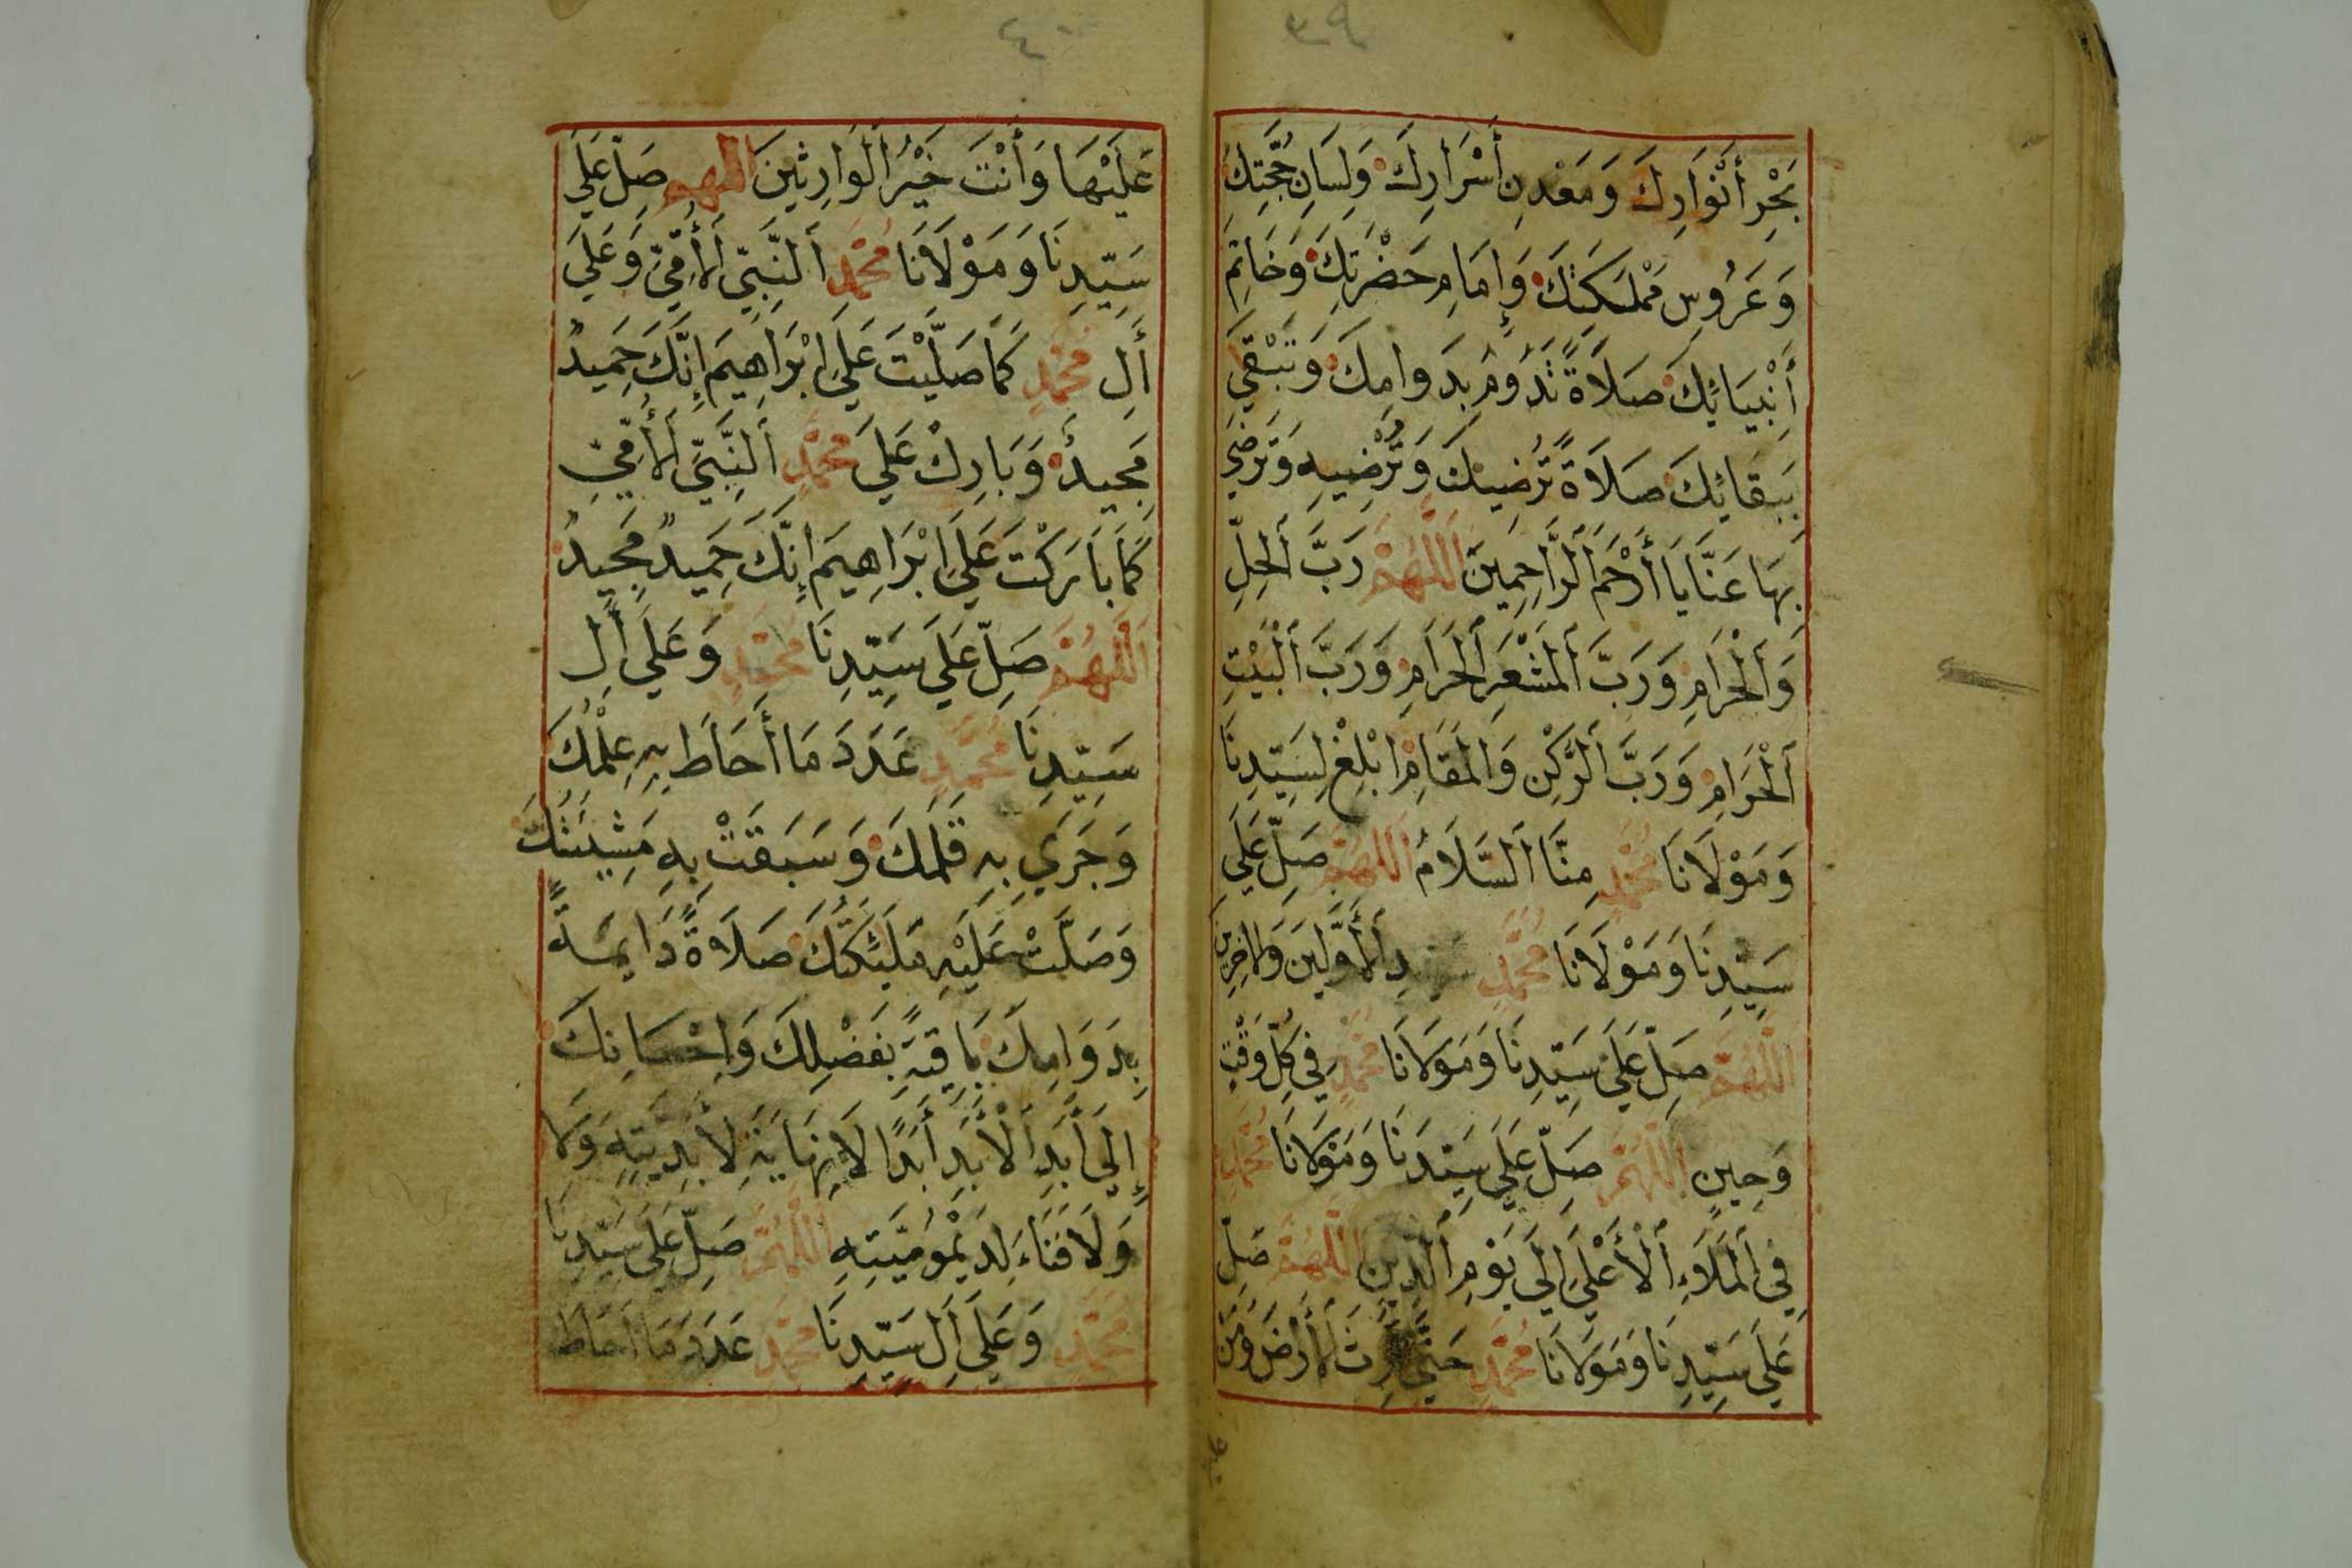 ٣٩
بَحْرِ أَنْوَارِكَ وَمَعْدِنِ أَسْرَارِكَ وَلِسَانِ حُجَّتِكَ
وَعَرُوسِ مَمْلَكَتِكَ وَإِمَامِ حَضْرَتِكَ وَخَاتِمِ
أَنْبِيَائِكَ صَلَاةً تَدُومُ بِدَوامِكَ وَتَبْقَي
بِبَقَائِكَ صَلَاةً تُرْضِيكَ وَتُرْضِيهِ وَتَرْضَي
بِهَا عَنَّا يَا أَرْحَمَ الرَّاحِمِينَ اَللَّهُمَّ رَبَّ اَلْحِلِّ
وَاَلْحَرَامِ وَرَبَّ اَلْمَشْعَرِ اَلْحَرَامِ وَرَبَّ اَلْبَيْتِ
اَلْحَرَامِ وَرَبَّ اَلرُّكْنِ وَالْمَقَامِ اَبْلِغْ لِسَيِّدِنَا
وَمَوْلَانَا مُحَمَّدٍ مِنَّا اَلسَّلَامُ اَللَّهُمَّ صَلِّ عَلَي
سَيِّدِنَا وَمَوْلَانَا مُحَمَّدٍ سَيِّدِ اَلْأَوَّلِينَ وَالاخِرِينَ
اَللَّهُمَّ صَلِّ عَلَي سَيِّدِنَا وَمَوْلَانَا مُحَمَّدٍ فِي كُلِّ وَقْتٍ
وَحِينٍ اَللَّهُمَّ صَلِّ عَلَي سَيِّدِنَا وَمَوْلَانَا مُحَمَّدٍ
فِي اَلْمَلَاءِ اَلْأَعْلَي إِلَي يَوْمِ اَلدِّينِ اَللَّهُمَّ صَلِّ
عَلَي سَيِّدِنَا وَمَوْلَانَا مُحَمَّدٍ حَتَّي تَرِثَ اَلْأَرْضَ وَمَنْ
٤٠
عَلَيْهَا وَأَنْتَ خَيْرُ اَلْوَارِثِينَ اللهم صَلِّ عَلَي
سَيِّدِنَا وَمَوْلَانَا مُحَمَّدٍ اَلنَّبِيِّ اَلْأُمِّيِّ وَعَلَي
أَلِ مُحَمَّدٍ كَمَا صَلَّيْتَ عَلَي اِبْرَاهِيمَ إِنَّكَ حَمِيدٌ
مَجِيدٌ وَبَارِكْ عَلَي مُحَمَّدٍ اَلنَّبِيِّ اَلْأُمِّيِّ
كَمَا بَارَكْتَ عَلَي اِبْرَاهِيمَ إِنَّكَ حَمِيدٌ مَجِيدٌ
اَللَّهُمَّ صَلِّ عَلَي سَيِّدِنَا مُحَمَّدٍ وَعَلَي أَلِ
سَيِّدِنَا مُحَمَّدٍ عَدَدَ مَا أَحَاطَ بِهِ عِلْمُكَ
وَجَرَي بِهِ قَلَمُكَ وَسَبَقَتْ بِهِ مَشِيئَتُكَ
وَصَلَّتْ عَلَيْهِ مَلَئِكَتُكَ صَلَاةً دَايِمَةً
بِدَوَامِكَ بَاقِيَةً بِفَضْلِكَ وَاِحْسَانِكَ
إِلَي أَبَدِ اَلْأَبَدِ أَبَدًا لَا نِهَايَةَ لِأَبَدِيَّتِهِ وَلَا
وَلَا فَنَاءَ لِدَيْمُومِيَّتِهِ اَللَّهُمَّ صَلِّ عَلَي سَيِّدِنَا
مُحَمَّدٍ وَعَلَي أَلِ سَيِّدِنَا مُحَمَّدٍ عَدَدَ مَا اَحَاطَ